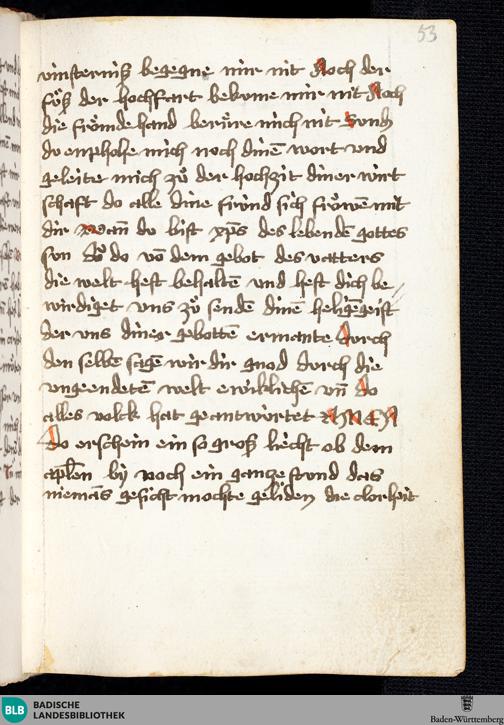 53
vinsterniß begegne mir nit Noch der
fůß der hochfart bekome mir nit Noch
die frömde hand berüre mich nit Sonder
du enpholhe mich noch dinē wort vnd
geleite mich zů der hochzit diner wirt
schaft do alle dine fründ sich fröwē mit
dir Wan̄ du bist xp̄s des lebenden gottes
sun Do do vō dem gebot des vatters
die welt hest behaltē vnd hest dich be
wirdiget vns zů senden dinē heligēgeist
der vns diner gebottē ermante Durch
den selbē sagē wir dir gnod durch die
vngeendetē welt ewiklichē vn̄ do
alles volck hat geantwürtet AMEN
Do erschein ein so groß liecht ob dem
apl̄en bÿ noch ein gantze stund das
niemās gesicht mochte geliden die clorheit
BLB BADISCHE
LANDESBIBLIOTHEK
Baden-Württemberg